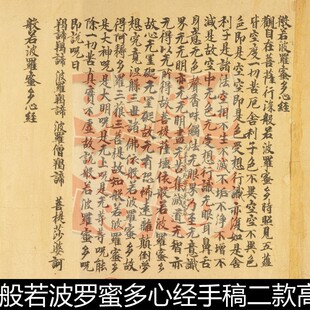 般若波羅蜜多心経
觀自在菩薩行深般若波羅蜜多時照見五蘊
皆空度一切苦厄舍利子色不異空空不異
色色即是空空即是色受想行識亦復如是舍
利子是諸法空相不生不滅不垢不净不增不
減是故空中无色无受想行識无眼耳鼻舌
身意无色聲香味觸法无眼界乃至无意識
界无无明亦无无明盡乃至无老死亦无老死
盡无苦集滅道无智亦无得以无所得故菩提薩埵依般若波羅蜜多
故心无罣礙无罣礙故无有恐怖遠離顛倒夢
想究竟涅槃三世諸佛依般若波羅蜜多故
得阿耨多羅三藐三菩提故知般若波羅蜜多
是大神呪是大明呪是无上呪是无等等呪能
除一切苦真實不虚故說般若波羅蜜多呪
即說呪曰
羯諦羯諦 波羅羯諦 波羅僧羯諦 菩提莎婆訶
般若波羅蜜多心経
般若波罗蜜多心经手稿二款高